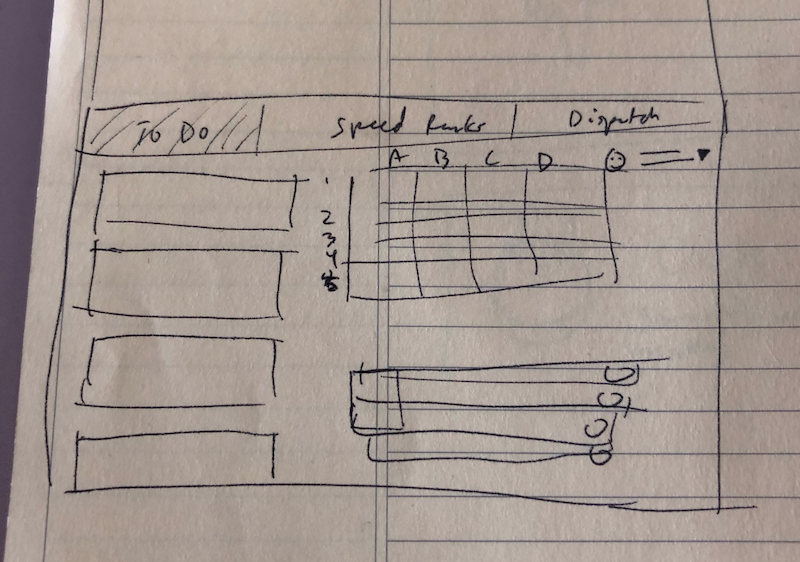 To Do Speed Ranks Dispatch
A B C D
1
2
3
4
5